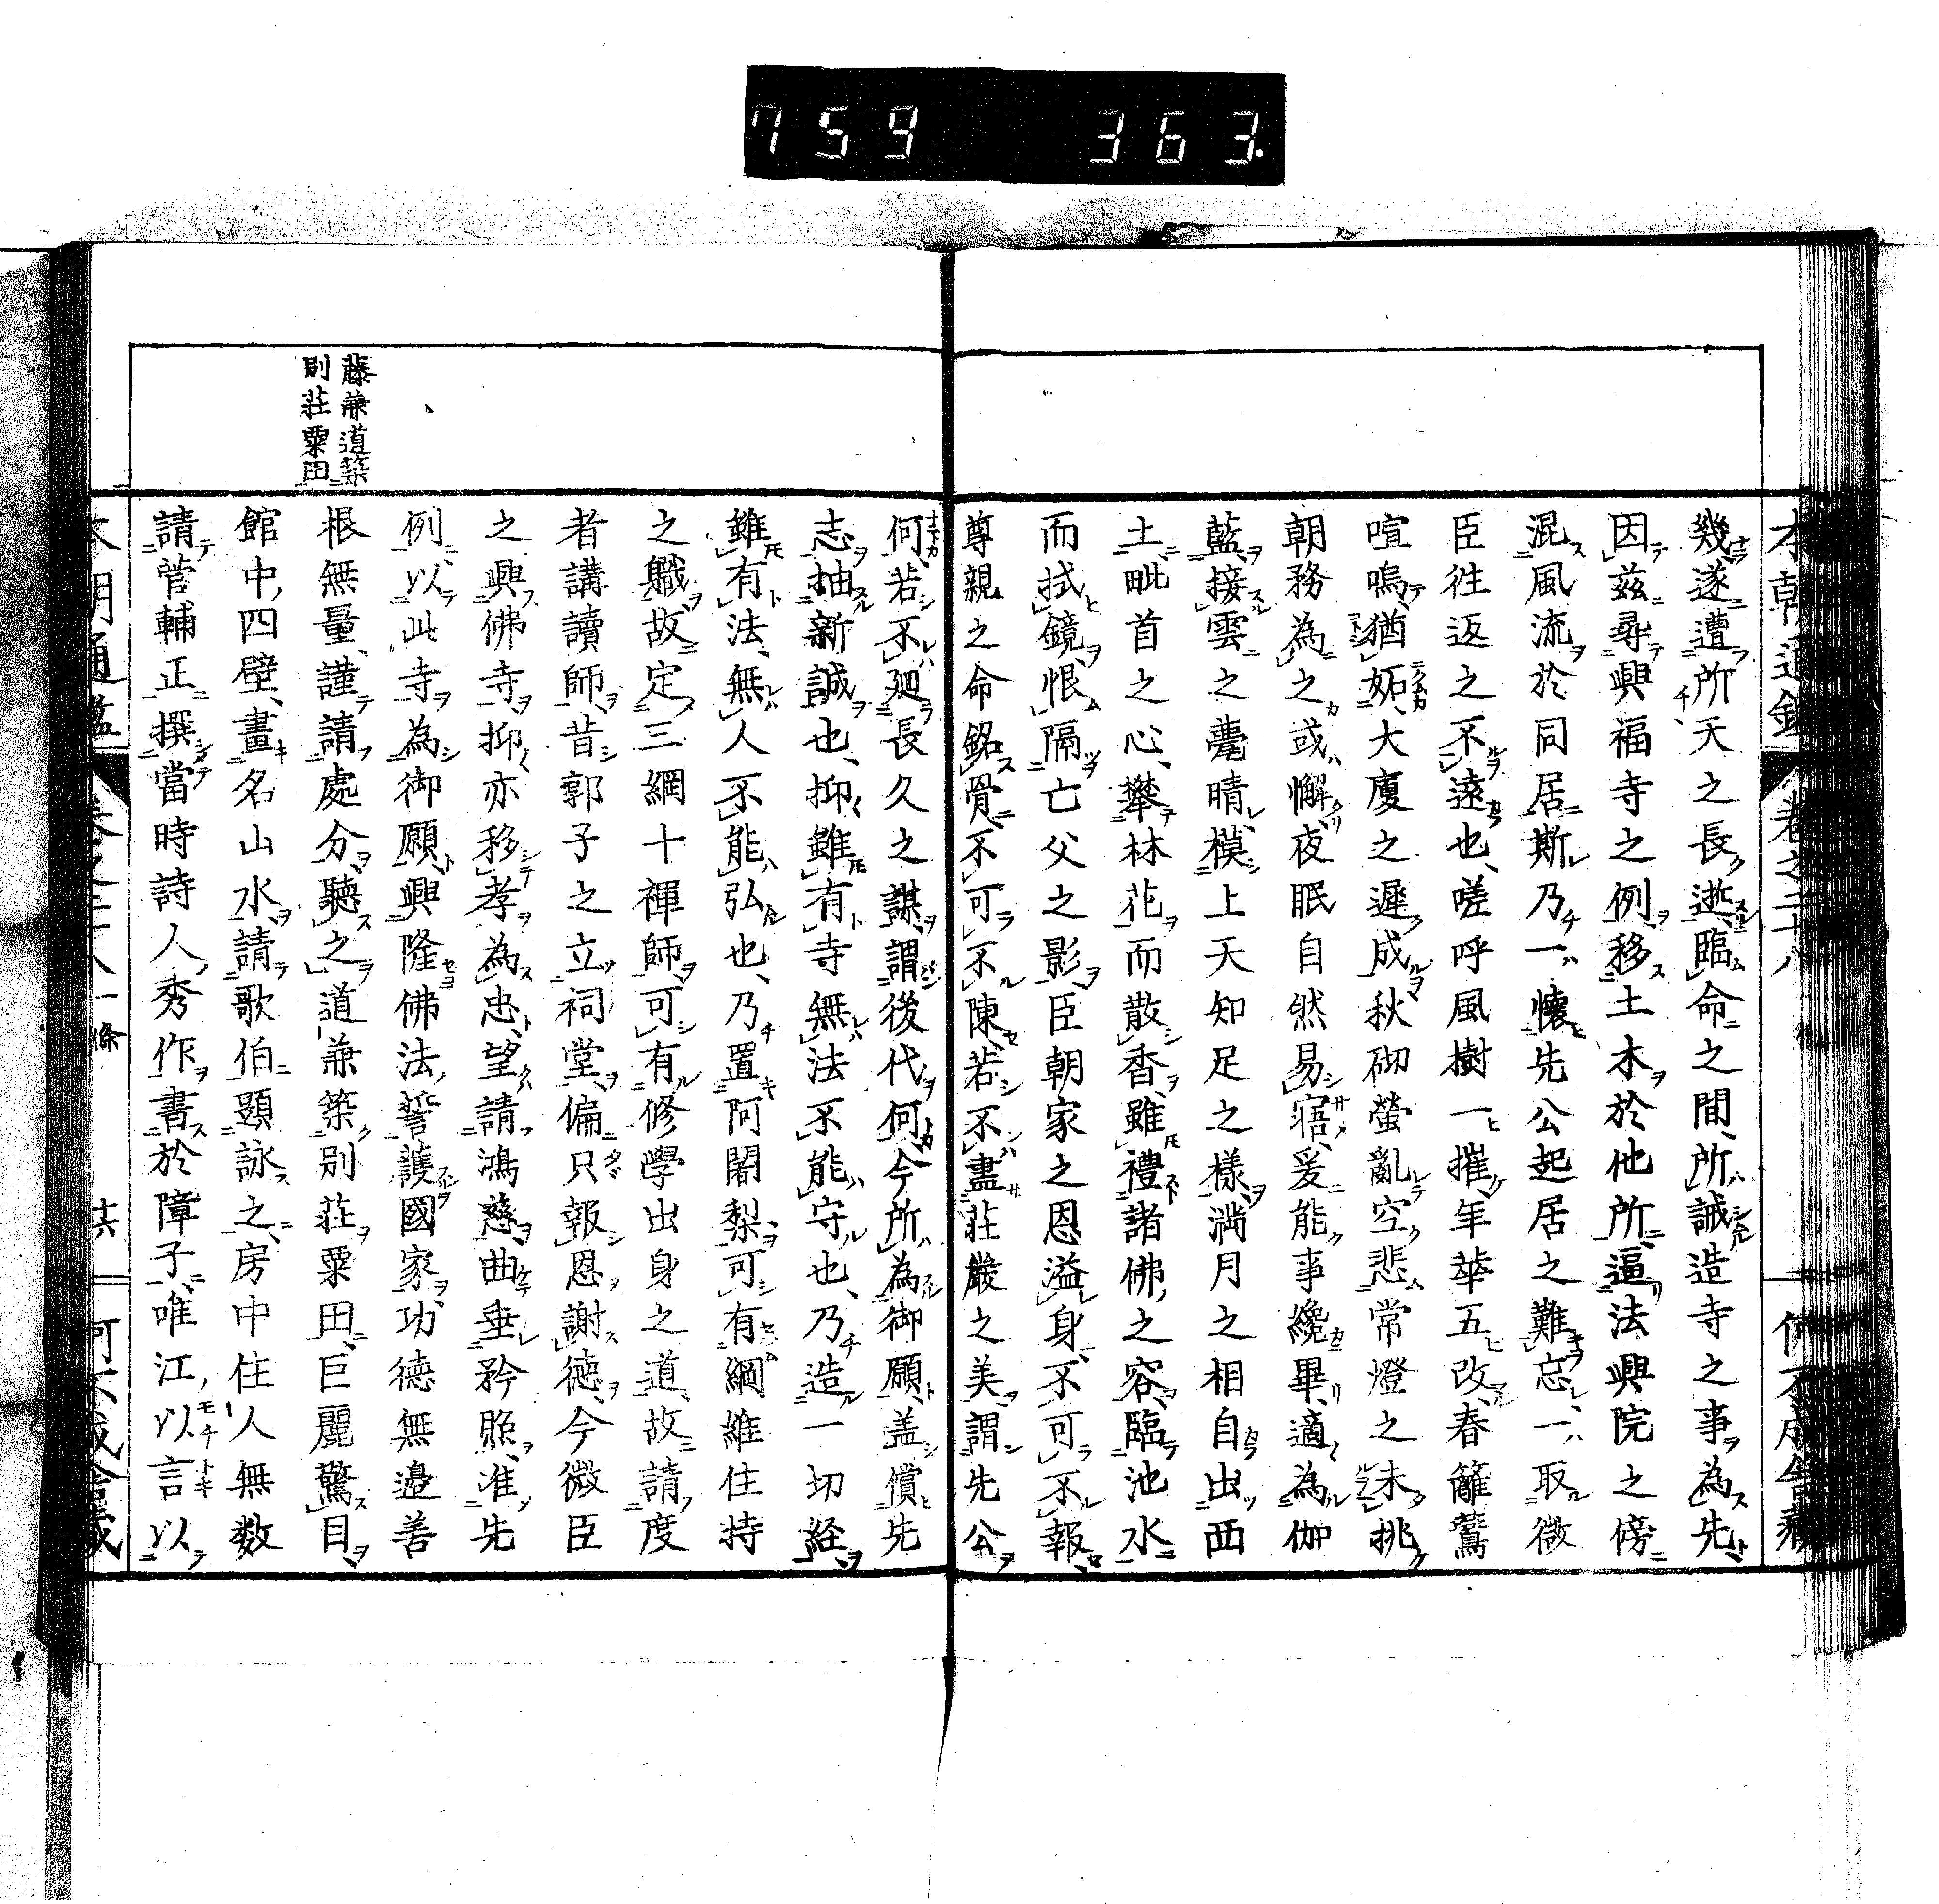 759 363.
本朝通鑑 卷之二十八
幾遂遭所天之長逝臨命之間所誡造寺之事為先
因茲尋興福寺之例移土木於他所逼法興院之傍
混風流於同居斯乃一懷先公起居之難忘一取微
臣往返之不遠也嗟呼風樹一摧年華五改春籬鶯
喧嗚猶妬大廈之遲成秋砌螢亂空悲常燈之未挑
朝務為之或懈夜眠自然易寤爰能事纔畢適為伽
藍接雲之甍晴模上天知足之樣満月之相自出西
土毗首之心攀林花而散香雖禮諸佛之容臨池水
而拭鏡恨隔亡父之影臣朝家之恩溢身不可不報
尊親之命銘骨不可不陳若不盡莊嚴之美謂先公
何若不廻長久之謀謂後代何今所為御願盖償先
志抽新誠也抑雖有寺無法不能守也乃造一切経
雖有法無人不能弘也乃置阿闍梨可有綱維住持
之職故定三綱十禪師可有修學出身之道故請度
者講讀師昔郭子之立祠堂偏只報恩謝徳今微臣
之興佛寺抑亦移孝為忠望請鴻慈曲垂矜照准先
例以此寺為御願興隆佛法誓護國家功徳無邉善
根無量謹請處分聽之道兼築別莊粟田巨麗驚目
館中四壁畫名山水請歌伯題詠之房中住人無数
請菅輔正撰當時詩人秀作書於障子唯江以言以
藤兼道築
別莊粟田
本朝通鑑 卷之二十八 一條 十六